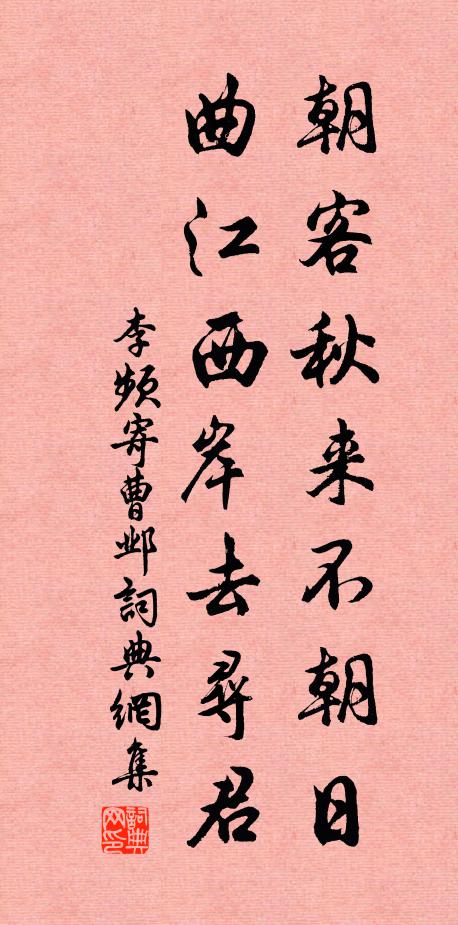 朝客秋来不朝日
曲江西岸去尋君
李頻寄曹鄴詞典網集
詞典网印